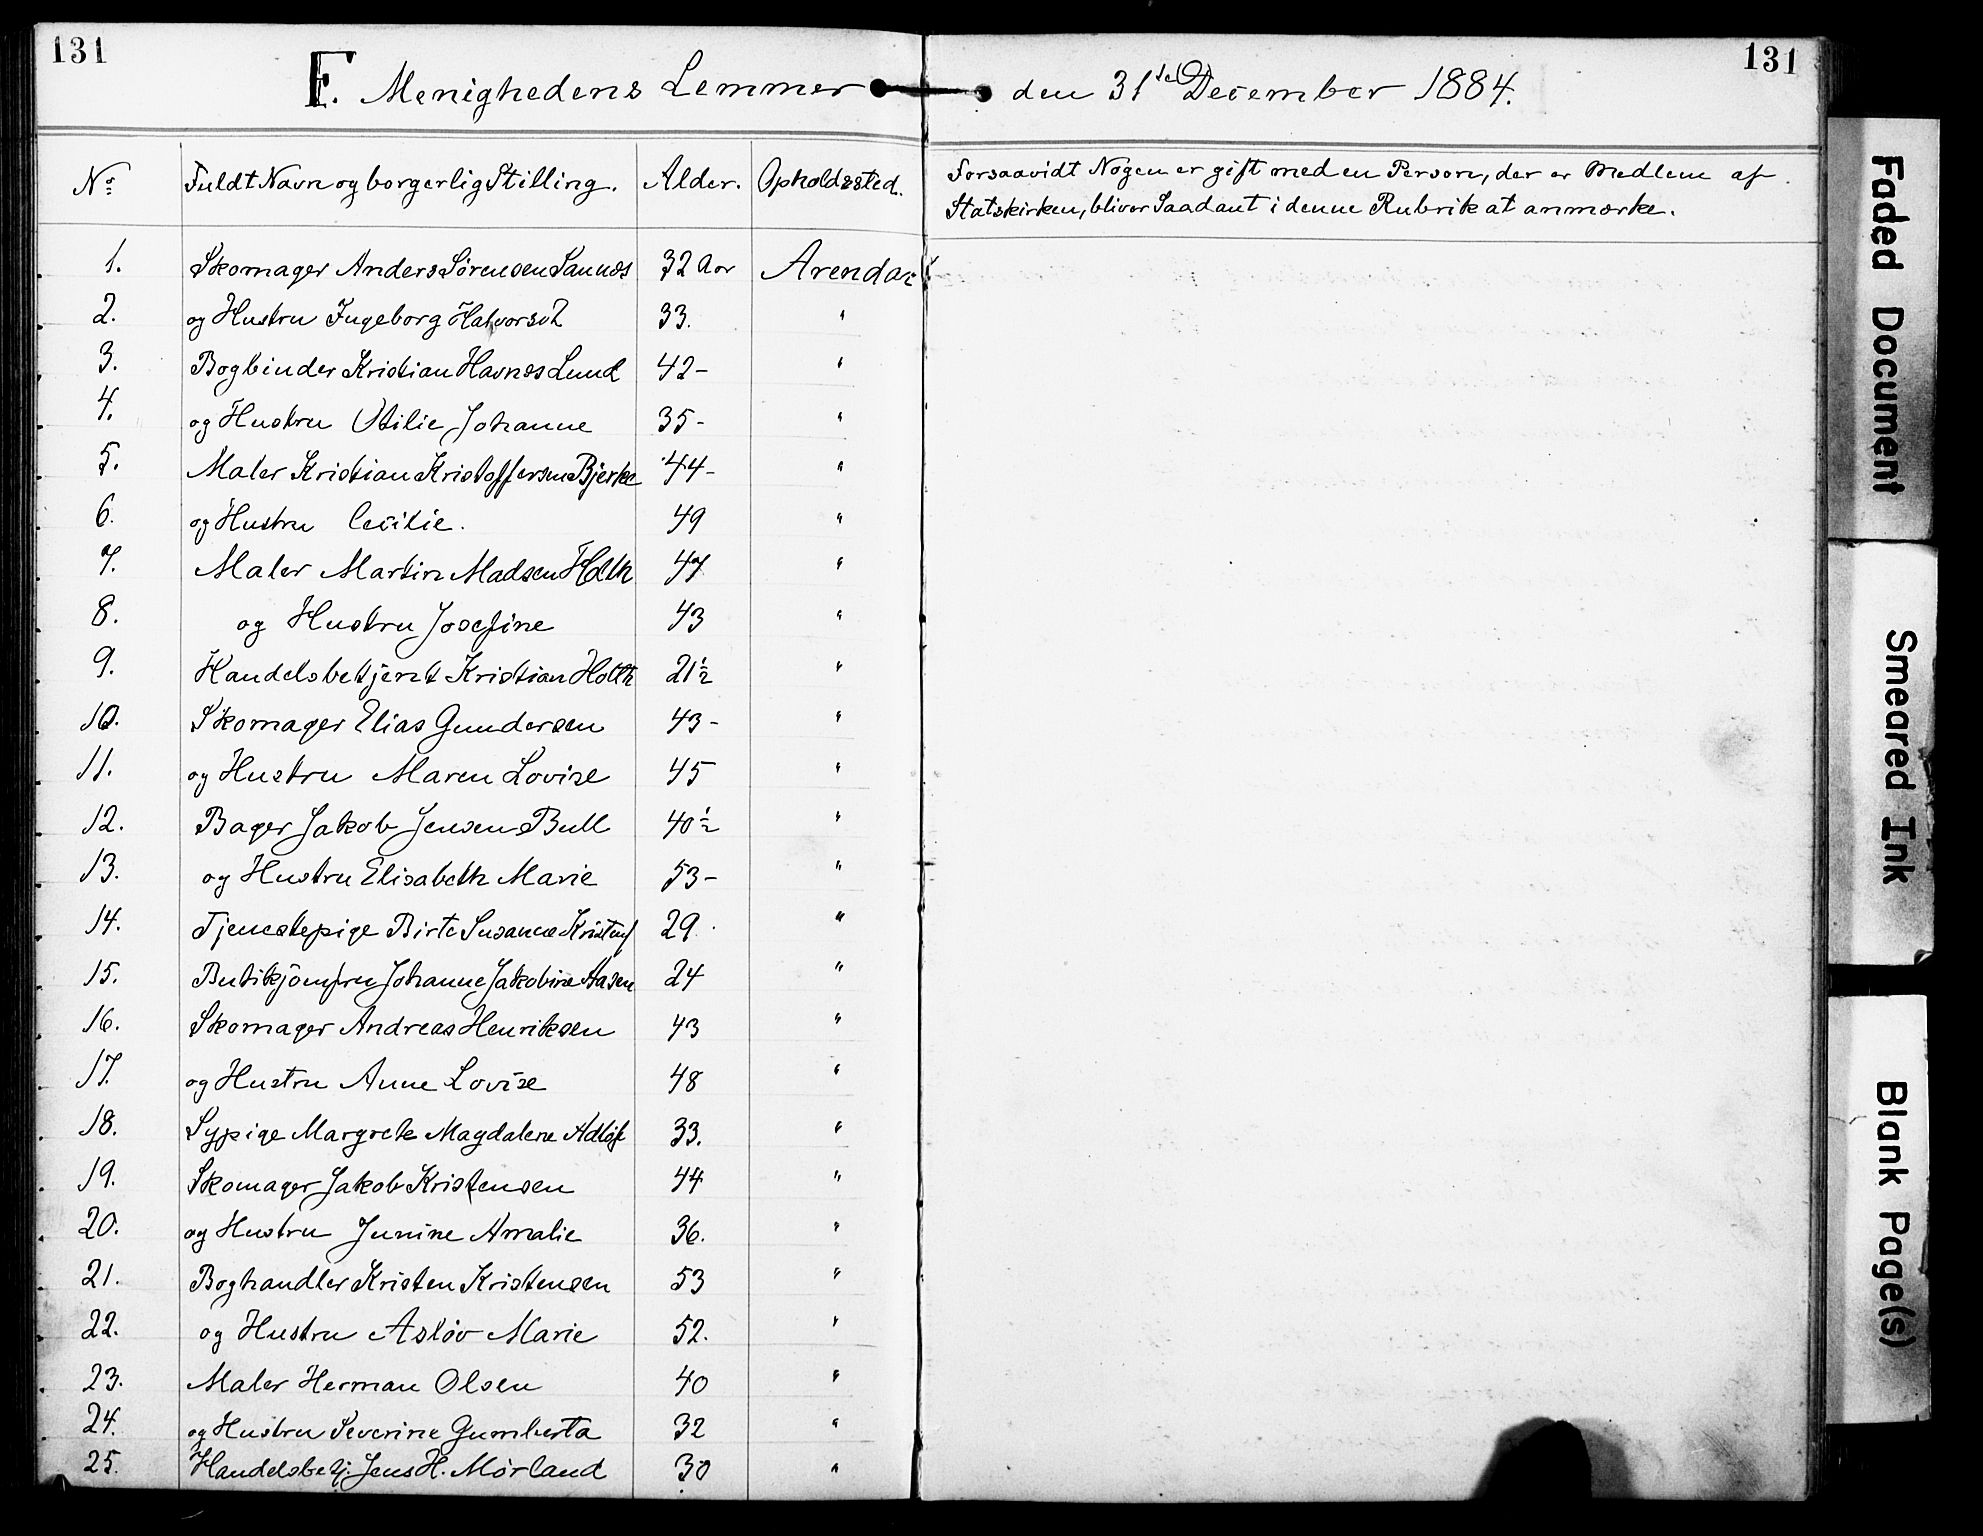 131
131
F. Menighedens Lemmer den 31te December 1884.
No Fuldt Navn og borgerlig Stilling. Alder. Opholdssted. Forsaavidt Nogen er gift med en Person, der er Medlem af
Statskirken, bliver Saadant i denne Rubrik at anmærke.
1. Skomager Anders Sørensen Sannes 32 Aar Arendal
2. og Hustru Ingeborg 33. "
3. Bogbinder Kristian Havnes Lund 42- "
4. og Hustru Otilie Johanne 35- "
5. Maler Kristian Kristoffersen Bjerke 44- "
6. og Hustru Cecilie. 49 "
7. Maler Martin Madsen Holth 47 "
8. og Hustru Josefine 43 "
9. Handelsbetjent Kristian Holth 21 1/2 "
10. Skomager Elias Gundersen 43- "
11. og Hustru Maren Lovise 45 "
12. Bager Jakob Jensen Bull 40 1/2 "
13. og Hustru Elisabeth Marie 53- "
14. Tjenestepige Birte Susanne 29. "
15. Butikjomfru Johanne Jakobine Aasen 24 "
16. Skomager Andreas Henriksen 43 "
17. og Hustru Anne Lovise 48 "
18. Sypige Margrete Magdalene 33. "
19. Skomager Jakob Kristensen 44 "
20. og Hustru Junine Amalie 36. "
21. Boghandler Kristen Kristensen 53 "
22. og Hustru Asløv Marie 52. "
23. Maler Herman Olsen 40 "
24. og Hustru Severine Gumberta 32 "
25. Handelsbetj. Jens H. Mørland 30 "
Faded Document
Smeared Ink
Blank Page(s)